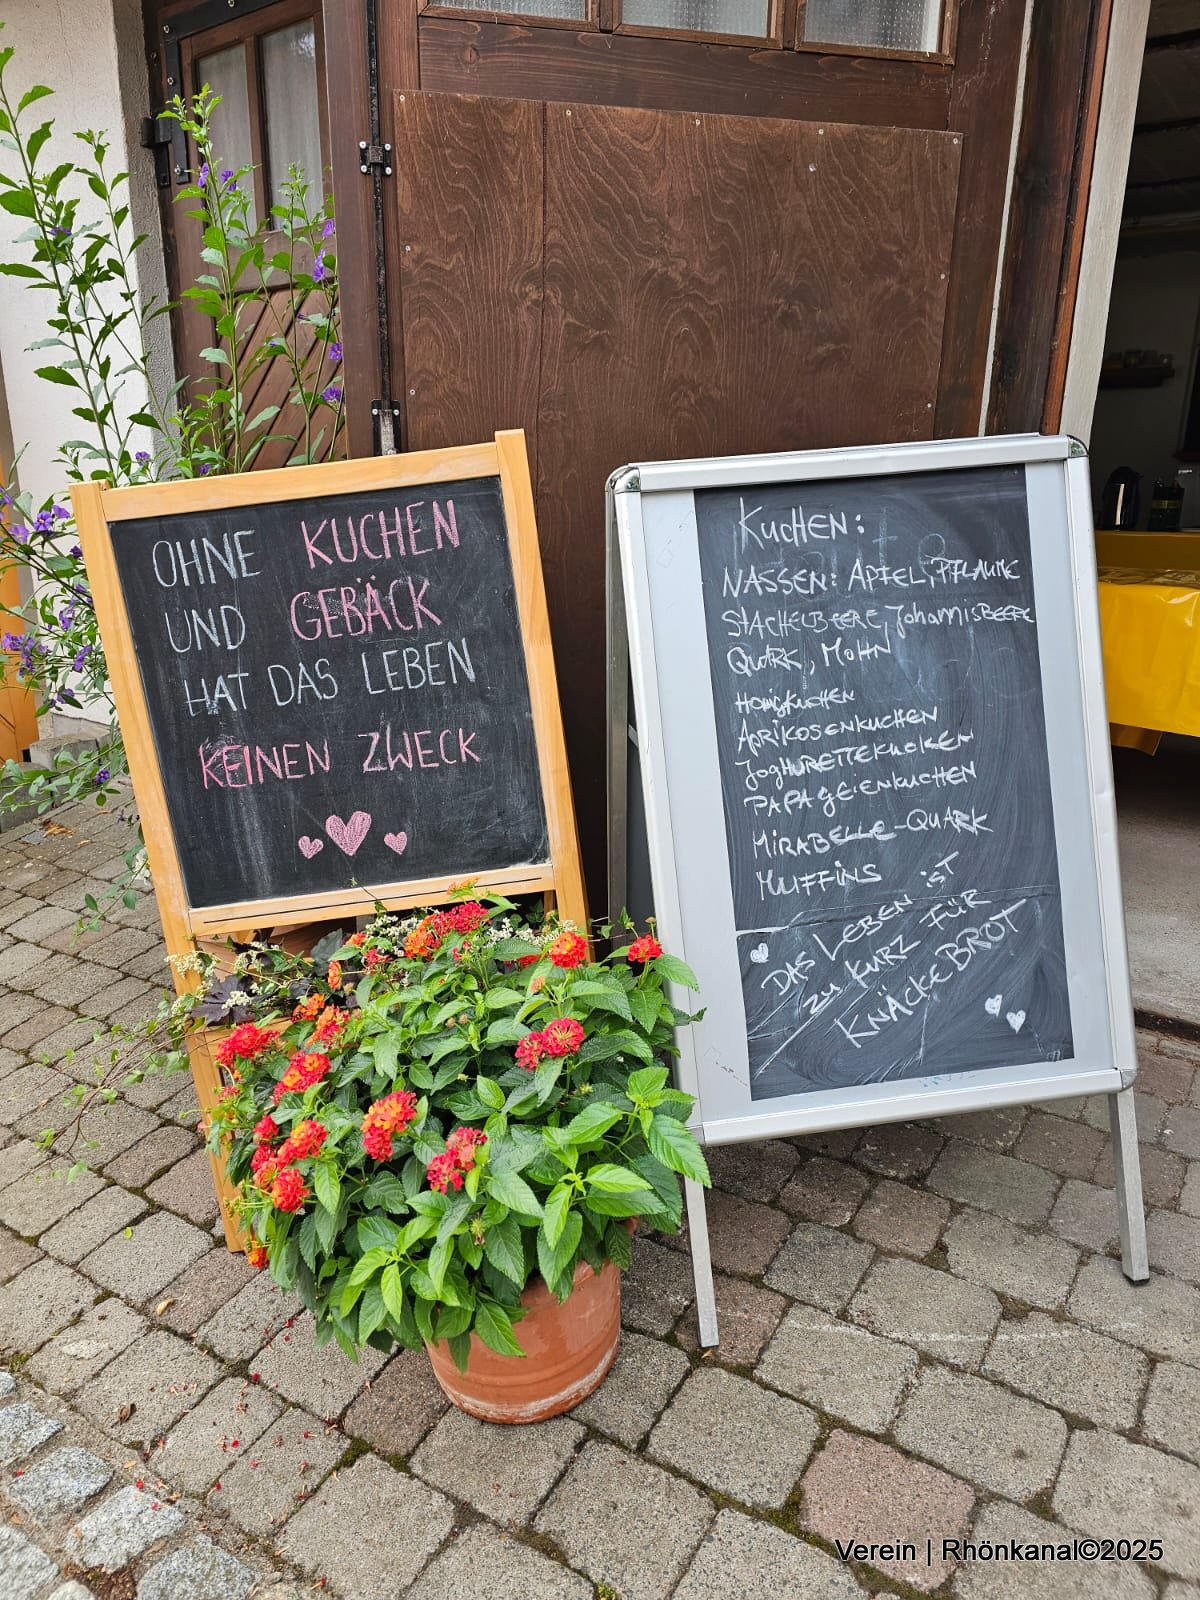 OHNE KUCHEN
UND GEBÄCK
HAT DAS LEBEN
KEINEN ZWECK
KUCHEN:
NASSEN: APFEL, PFLAUME
STACHELBEERE, JohannisBEERE
QUARK, MOHN
HONigKUCHEN
APRiKOSENKUCHEN
JogHURETTEKUCHEN
PAPAgEiENKUCHEN
MiRABELLE-QUARK
MUFFiNS
DAS LEBEN iST
ZU KURZ FÜR
KNÄCKEBROT
Verein | Rhönkanal©2025